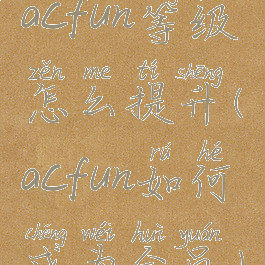 acfun等级
zěn me tí shēng
怎么提升(
rú hé
acfun如何
chéng wéi huì yuán
成为会员)